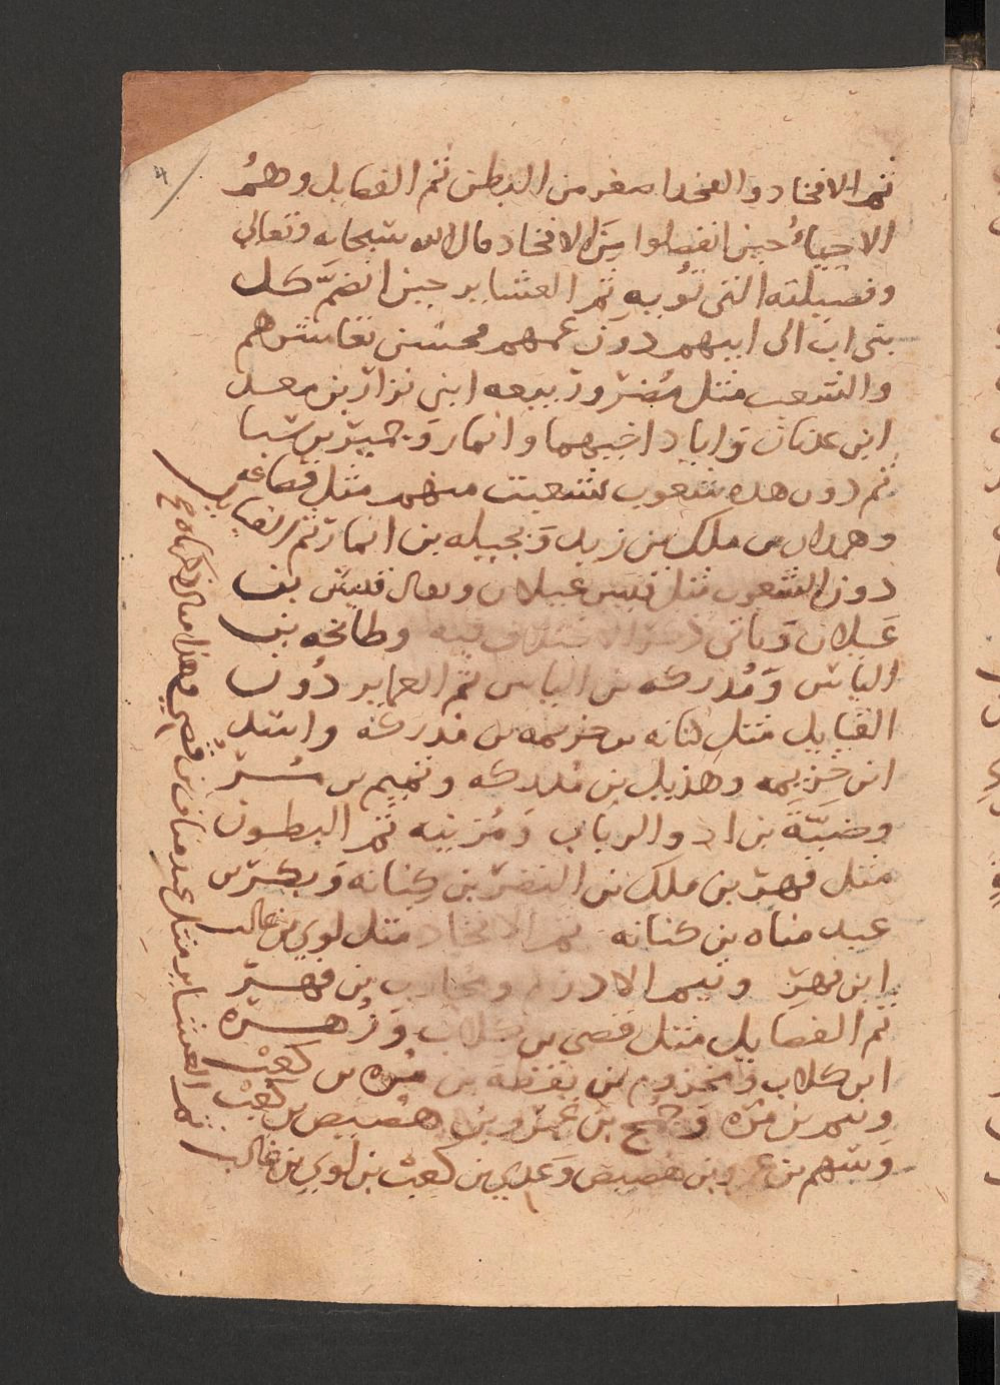 ثم الافخاد والفخد اصغر من البطن ثم الفصايل وهم
الاحياء حين انفصلوا من الافخاد قال الله سبحانه وتعالى
وفصيلته التى تؤيه ثم العشاير حين انضم كل
بنى اب الى ابيهم دون عمهم فحسن تعاشرهم
والشعب مثل مضر وربيعه ابنى نزار بن معد
ابن عدنان واياد اخيهما وانمار وحمير بن سبا
ثم دون هذه شعوب تشعبت منهم مثل قضاعه
وهمدان بن ملك بن زيد وبجيله بن انمار ثم القبايل
دون الشعوب مثل قيس عيلان ويقال قيس بن
عيلان وياتى ذكر الاختلاف فيه وطابخه بن
الياس ومدركه بن الياس ثم العماير دون
القبايل مثل كنانه بن خزيمه بن مدركه واسد
ابن خزيمه وهذيل بن مدركه وتميم بن مر
وضبة بن اد والرباب ومزينه ثم البطون
مثل فهر بن ملك بن النضر بن كنانه وبكر بن
عبد مناه بن كنانه ثم الافخاد مثل لوي بن غالب
ابن فهر وتيم الادرم ومحارب بن فهر
ثم الفصايل مثل قصي بن كلاب وزهره
ابن كلاب ومخزوم بن يقظة بن مره بن كعب
وتيم بن مره وجمح بن عمرو بن هصيص بن كعب
وسهم بن عمرو بن هصيص وعدي بن كعب بن لوي بن غالب
ثم العشاير مثل عبد مناف بن قصي وهذا مثال ذكرناه
4